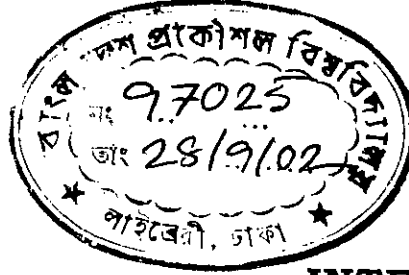 বাংলাদেশ প্রকৌশল বিশ্ববিদ্যালয়
নং 97025
তাং 28/9/02
★ লাইব্রেরী, ঢাকা ★